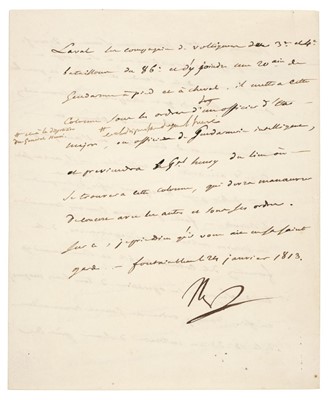 Laval les compagnies de voltigeurs des 3e et 4e
bataillons du 86e et d'y joindre une 20aine de
Gendarmes à pied et à cheval, il mettra cette
Colonne sous les ordres d'un officier d'Etat
major, ou officier de Gendarmerie intelligent,
et préviendra le Gal henry du lieu où
se trouvera cette colonne, qui devra manœuvrer
de concert avec les autres et sous ses ordres.
Sur ce, je prie Dieu qu'il vous ait en sa sainte
garde. — fontainebleau 24 janvier 1813.